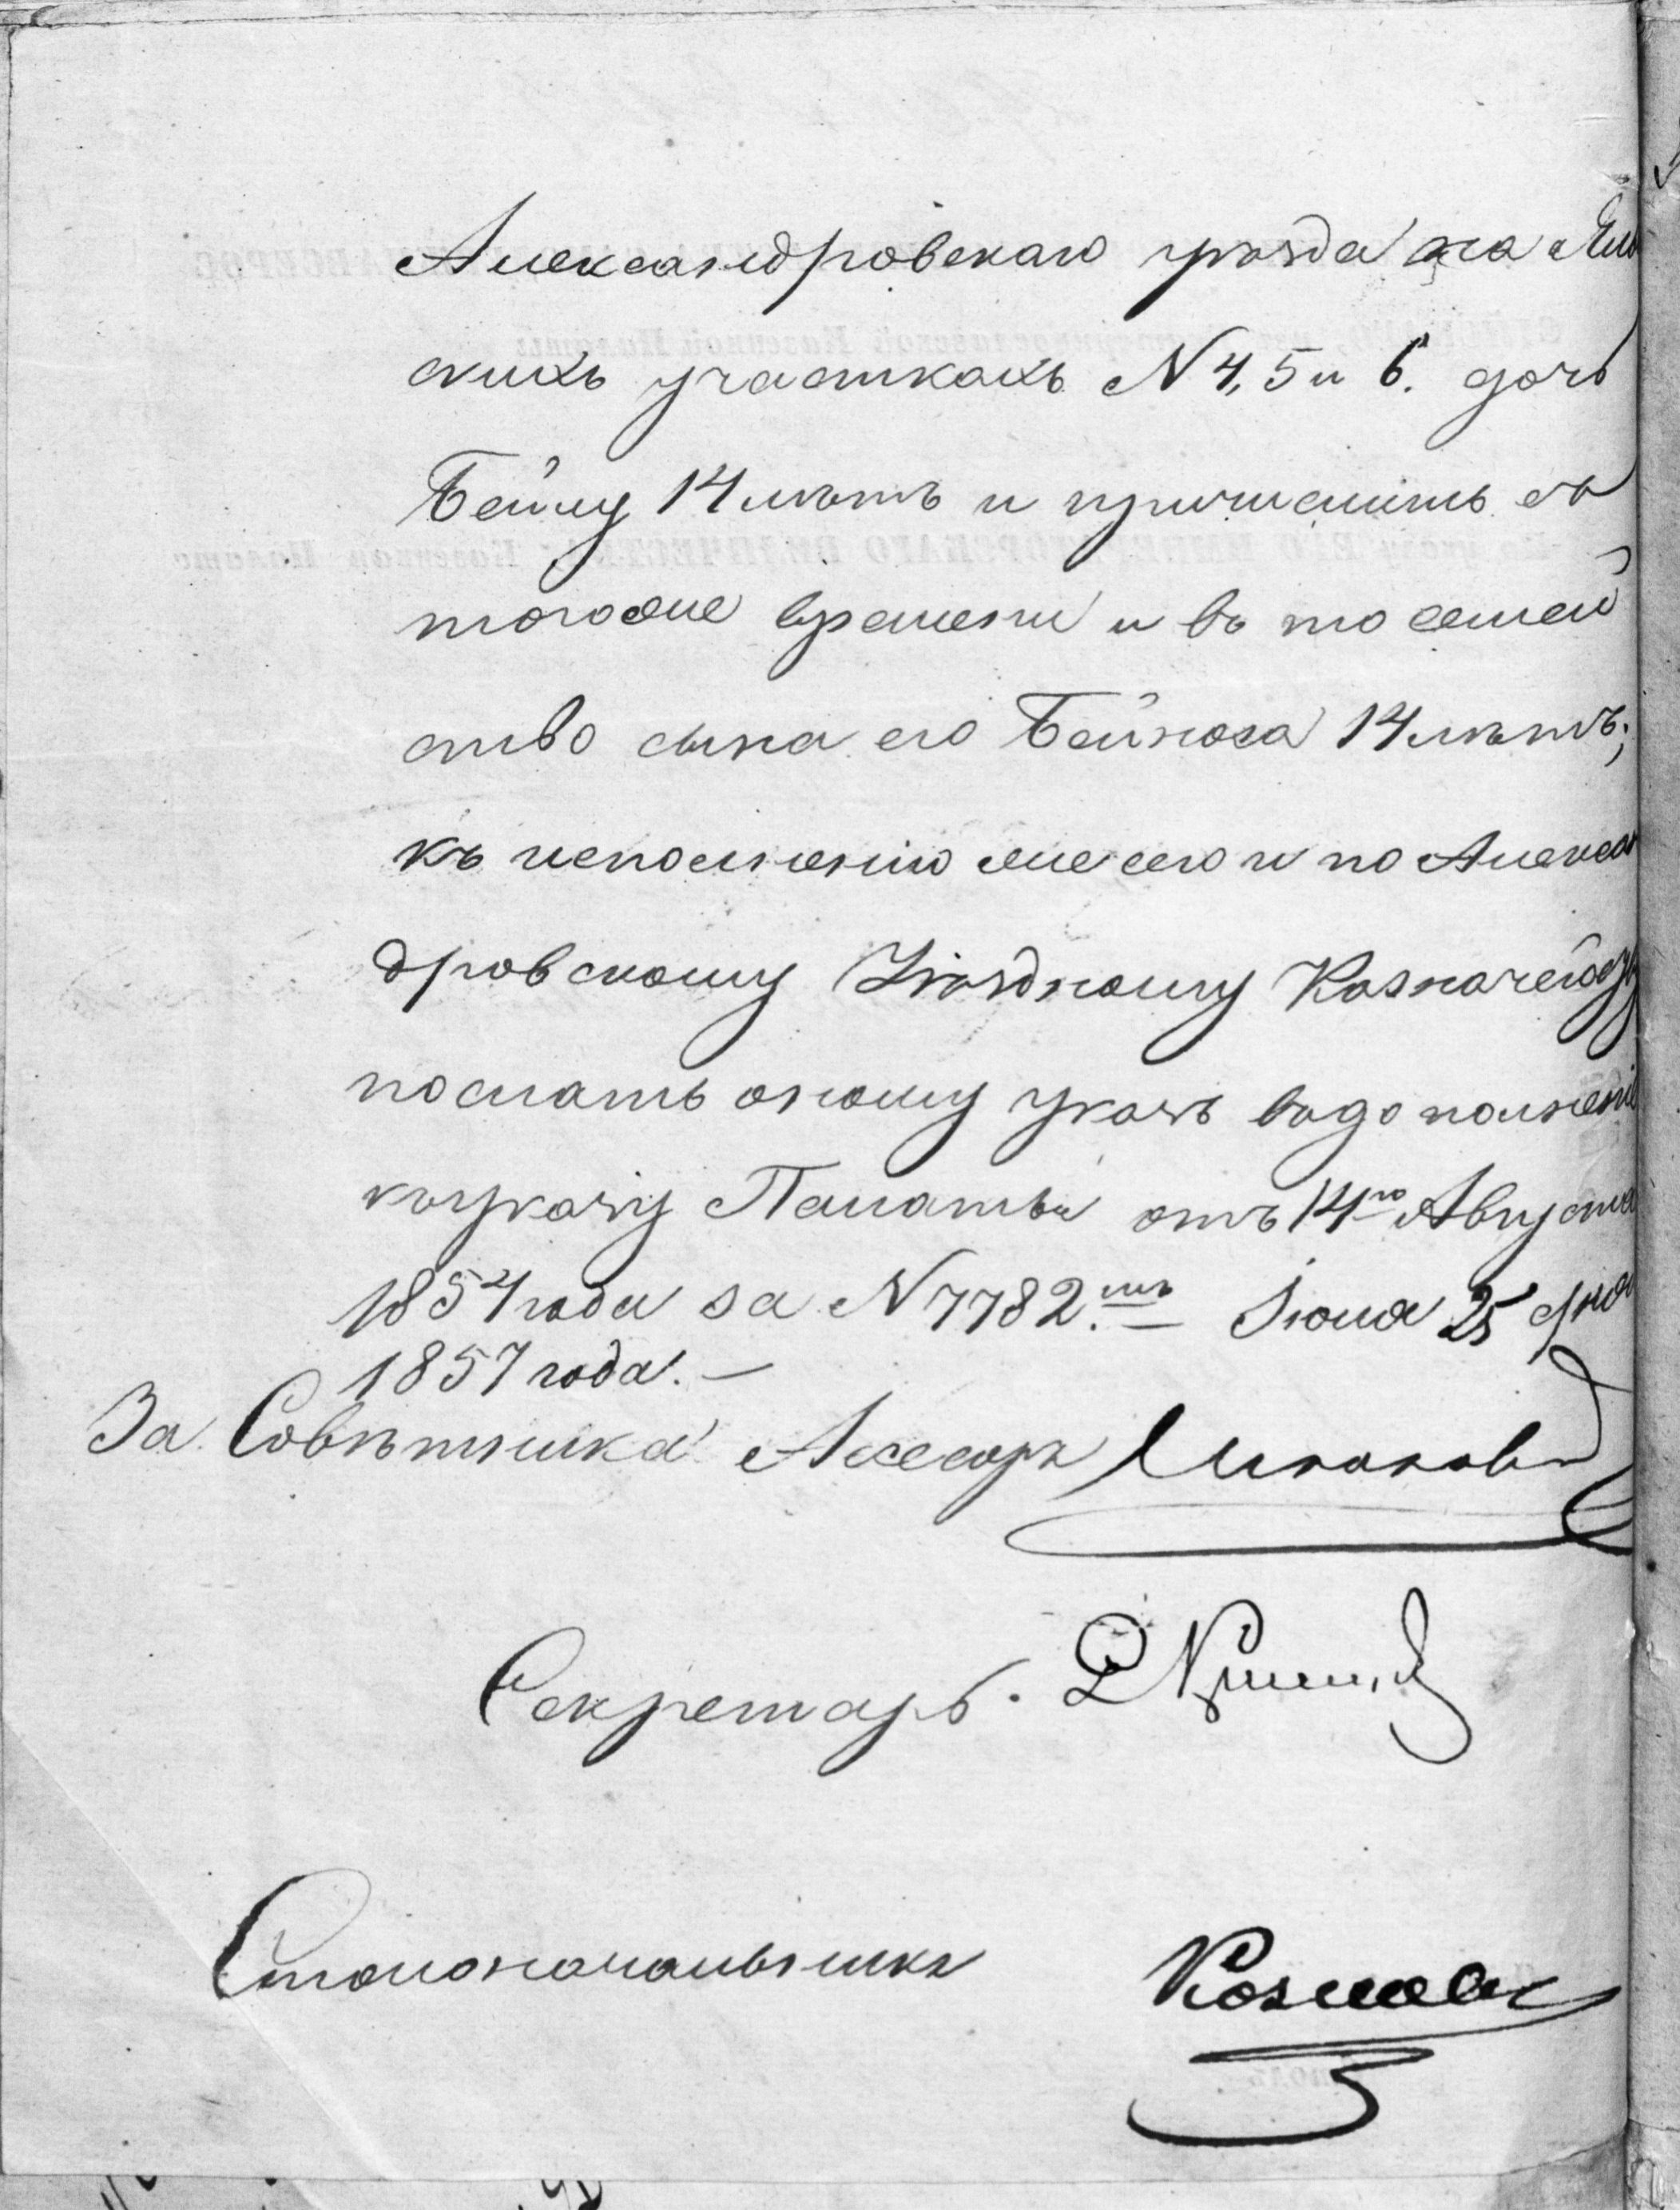 Александровскаго уѣзда на
скихъ участкахъ N 4, 5 и 6. дочь
Бейлу 14 лѣтъ и причислить съ
тогоже времени и въ то семей
ство сына его Бейноса 14 лѣтъ;
къ исполненію же сего и по Алексан
дровскому Уѣздному Казначейству
послать оному указъ въ дополненіе
къ указу Палаты отъ 14го Августа
1854 года за N 7782.мъ Іюня 25 дня
1857 года.
За Совѣтника Ассесоръ
Секретарь
Столоначальникъ